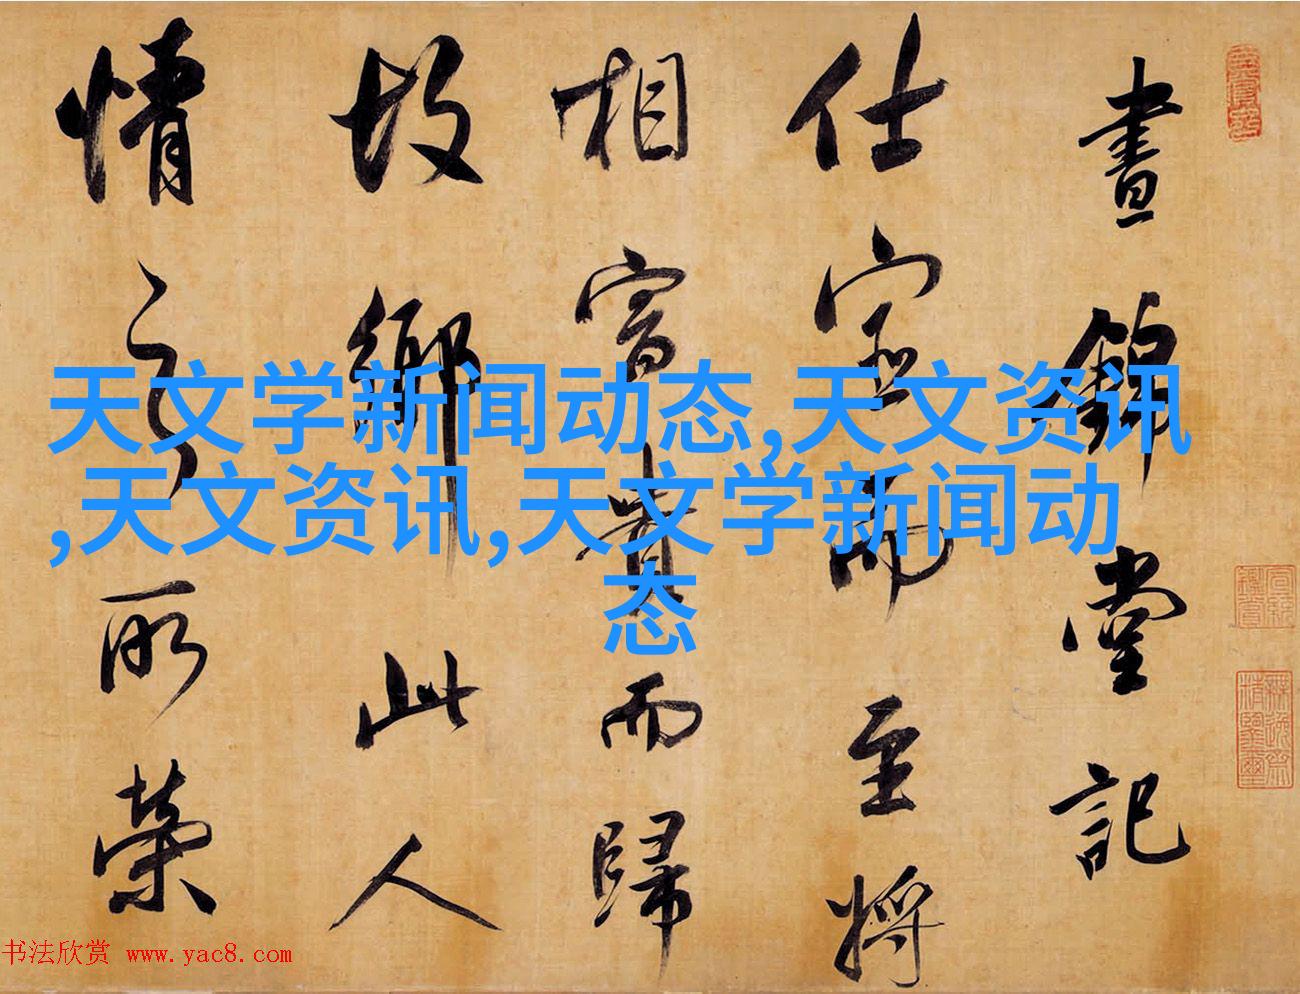 晝錦堂記
仕宦而至將
相富貴而歸
故鄉此人
情之所榮
天文学新闻动态,天文资讯
,天文资讯,天文学新闻动
态
书法欣赏 www.yac8.com